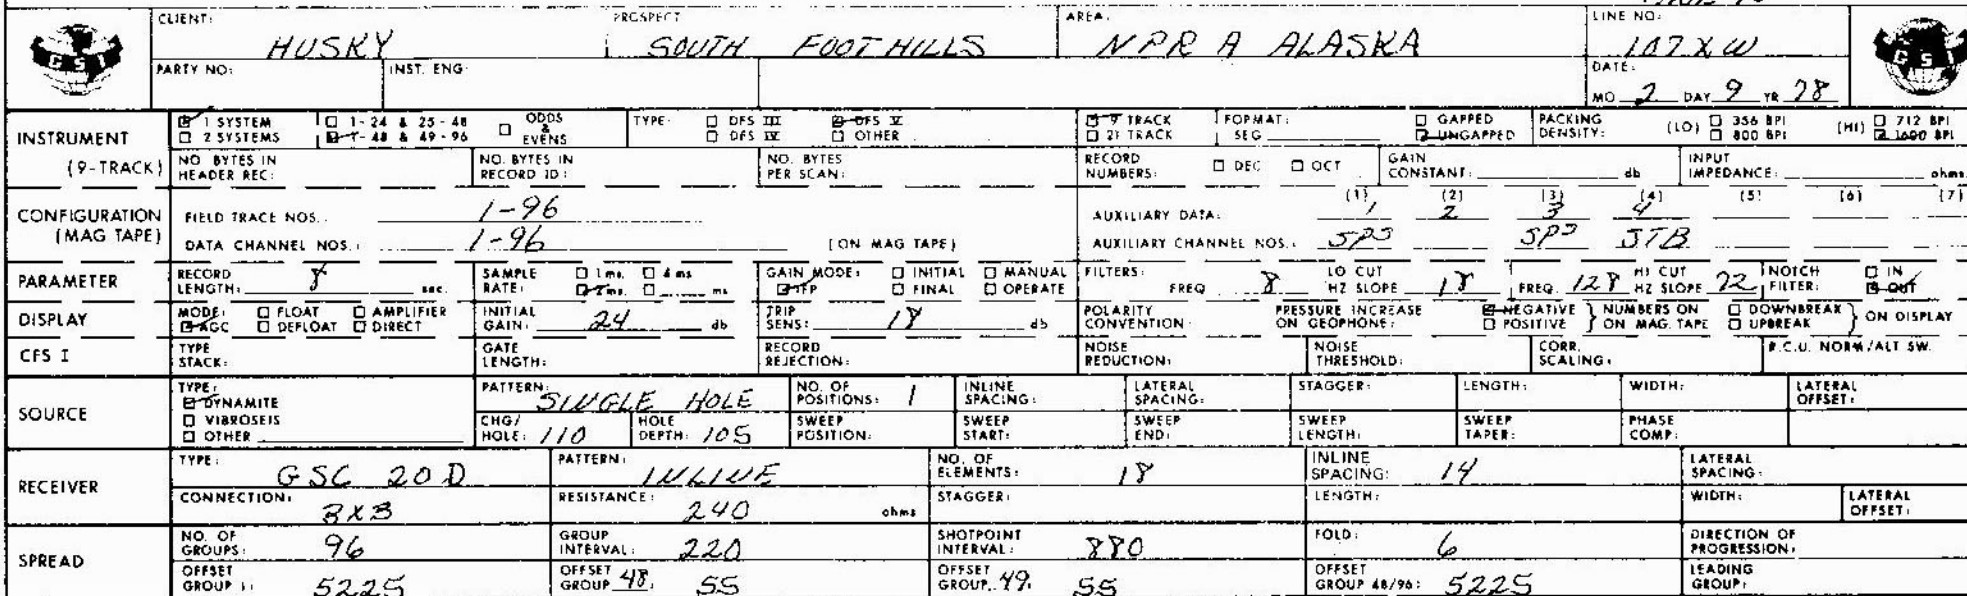 CLIENT: PROSPECT AREA: LINE NO:
HUSKY SOUTH FOOTHILLS NPR A ALASKA 107XW
GSI GSI
PARTY NO: INST. ENG: DATE:
MO 2 DAY 9 YR 78
INSTRUMENT 1 SYSTEM 1-24 & 25-48 ODDS & EVENS TYPE: DFS III DFS V 9 TRACK FORMAT: GAPPED PACKING DENSITY: (LO) 356 BPI (HI) 712 BPI
2 SYSTEMS 1-48 & 49-96 DFS IV OTHER 21 TRACK SEG UNGAPPED 800 BPI 1600 BPI
(9-TRACK) NO. BYTES IN HEADER REC: NO. BYTES IN RECORD ID: NO. BYTES PER SCAN: RECORD NUMBERS: DEC OCT GAIN CONSTANT: db INPUT IMPEDANCE: ohms
CONFIGURATION (MAG TAPE) FIELD TRACE NOS.: 1-96 AUXILIARY DATA: (1) 1 (2) 2 (3) 3 (4) 4 (5) (6) (7)
DATA CHANNEL NOS.: 1-96 (ON MAG TAPE) AUXILIARY CHANNEL NOS.: SPS STB
PARAMETER RECORD LENGTH: 8 sec. SAMPLE RATE: 1 ms. 4 ms 2 ms. ms GAIN MODE: INITIAL MANUAL IFP FINAL OPERATE FILTERS: FREQ 8 LO CUT HZ SLOPE 18 FREQ. 128 HI CUT HZ SLOPE 72 NOTCH FILTER: IN OUT
DISPLAY MODE: FLOAT AMPLIFIER AGC DEFLOAT DIRECT INITIAL GAIN: 24 db TRIP SENS: 18 db POLARITY CONVENTION: PRESSURE INCREASE ON GEOPHONE: NEGATIVE POSITIVE NUMBERS ON ON MAG. TAPE DOWNBREAK UPBREAK ON DISPLAY
CFS I TYPE STACK: GATE LENGTH: RECORD REJECTION: NOISE REDUCTION: NOISE THRESHOLD: CORR. SCALING: R.C.U. NORM/ALT SW.
SOURCE TYPE: DYNAMITE PATTERN: SINGLE HOLE NO. OF POSITIONS: 1 INLINE SPACING: LATERAL SPACING: STAGGER: LENGTH: WIDTH: LATERAL OFFSET:
VIBROSEIS OTHER CHG/HOLE: 110 HOLE DEPTH: 105 SWEEP POSITION: SWEEP START: SWEEP END: SWEEP LENGTH: SWEEP TAPER: PHASE COMP:
RECEIVER TYPE: GSC 20D PATTERN: INLINE NO. OF ELEMENTS: 18 INLINE SPACING: 14 LATERAL SPACING:
CONNECTION: 3X3 RESISTANCE: 240 ohms STAGGER: LENGTH: WIDTH: LATERAL OFFSET:
SPREAD NO. OF GROUPS: 96 GROUP INTERVAL: 220 SHOTPOINT INTERVAL: 880 FOLD: 6 DIRECTION OF PROGRESSION:
OFFSET GROUP 1: 5225 OFFSET GROUP 48: 55 OFFSET GROUP 49: 55 OFFSET GROUP 48/96: 5225 LEADING GROUP: